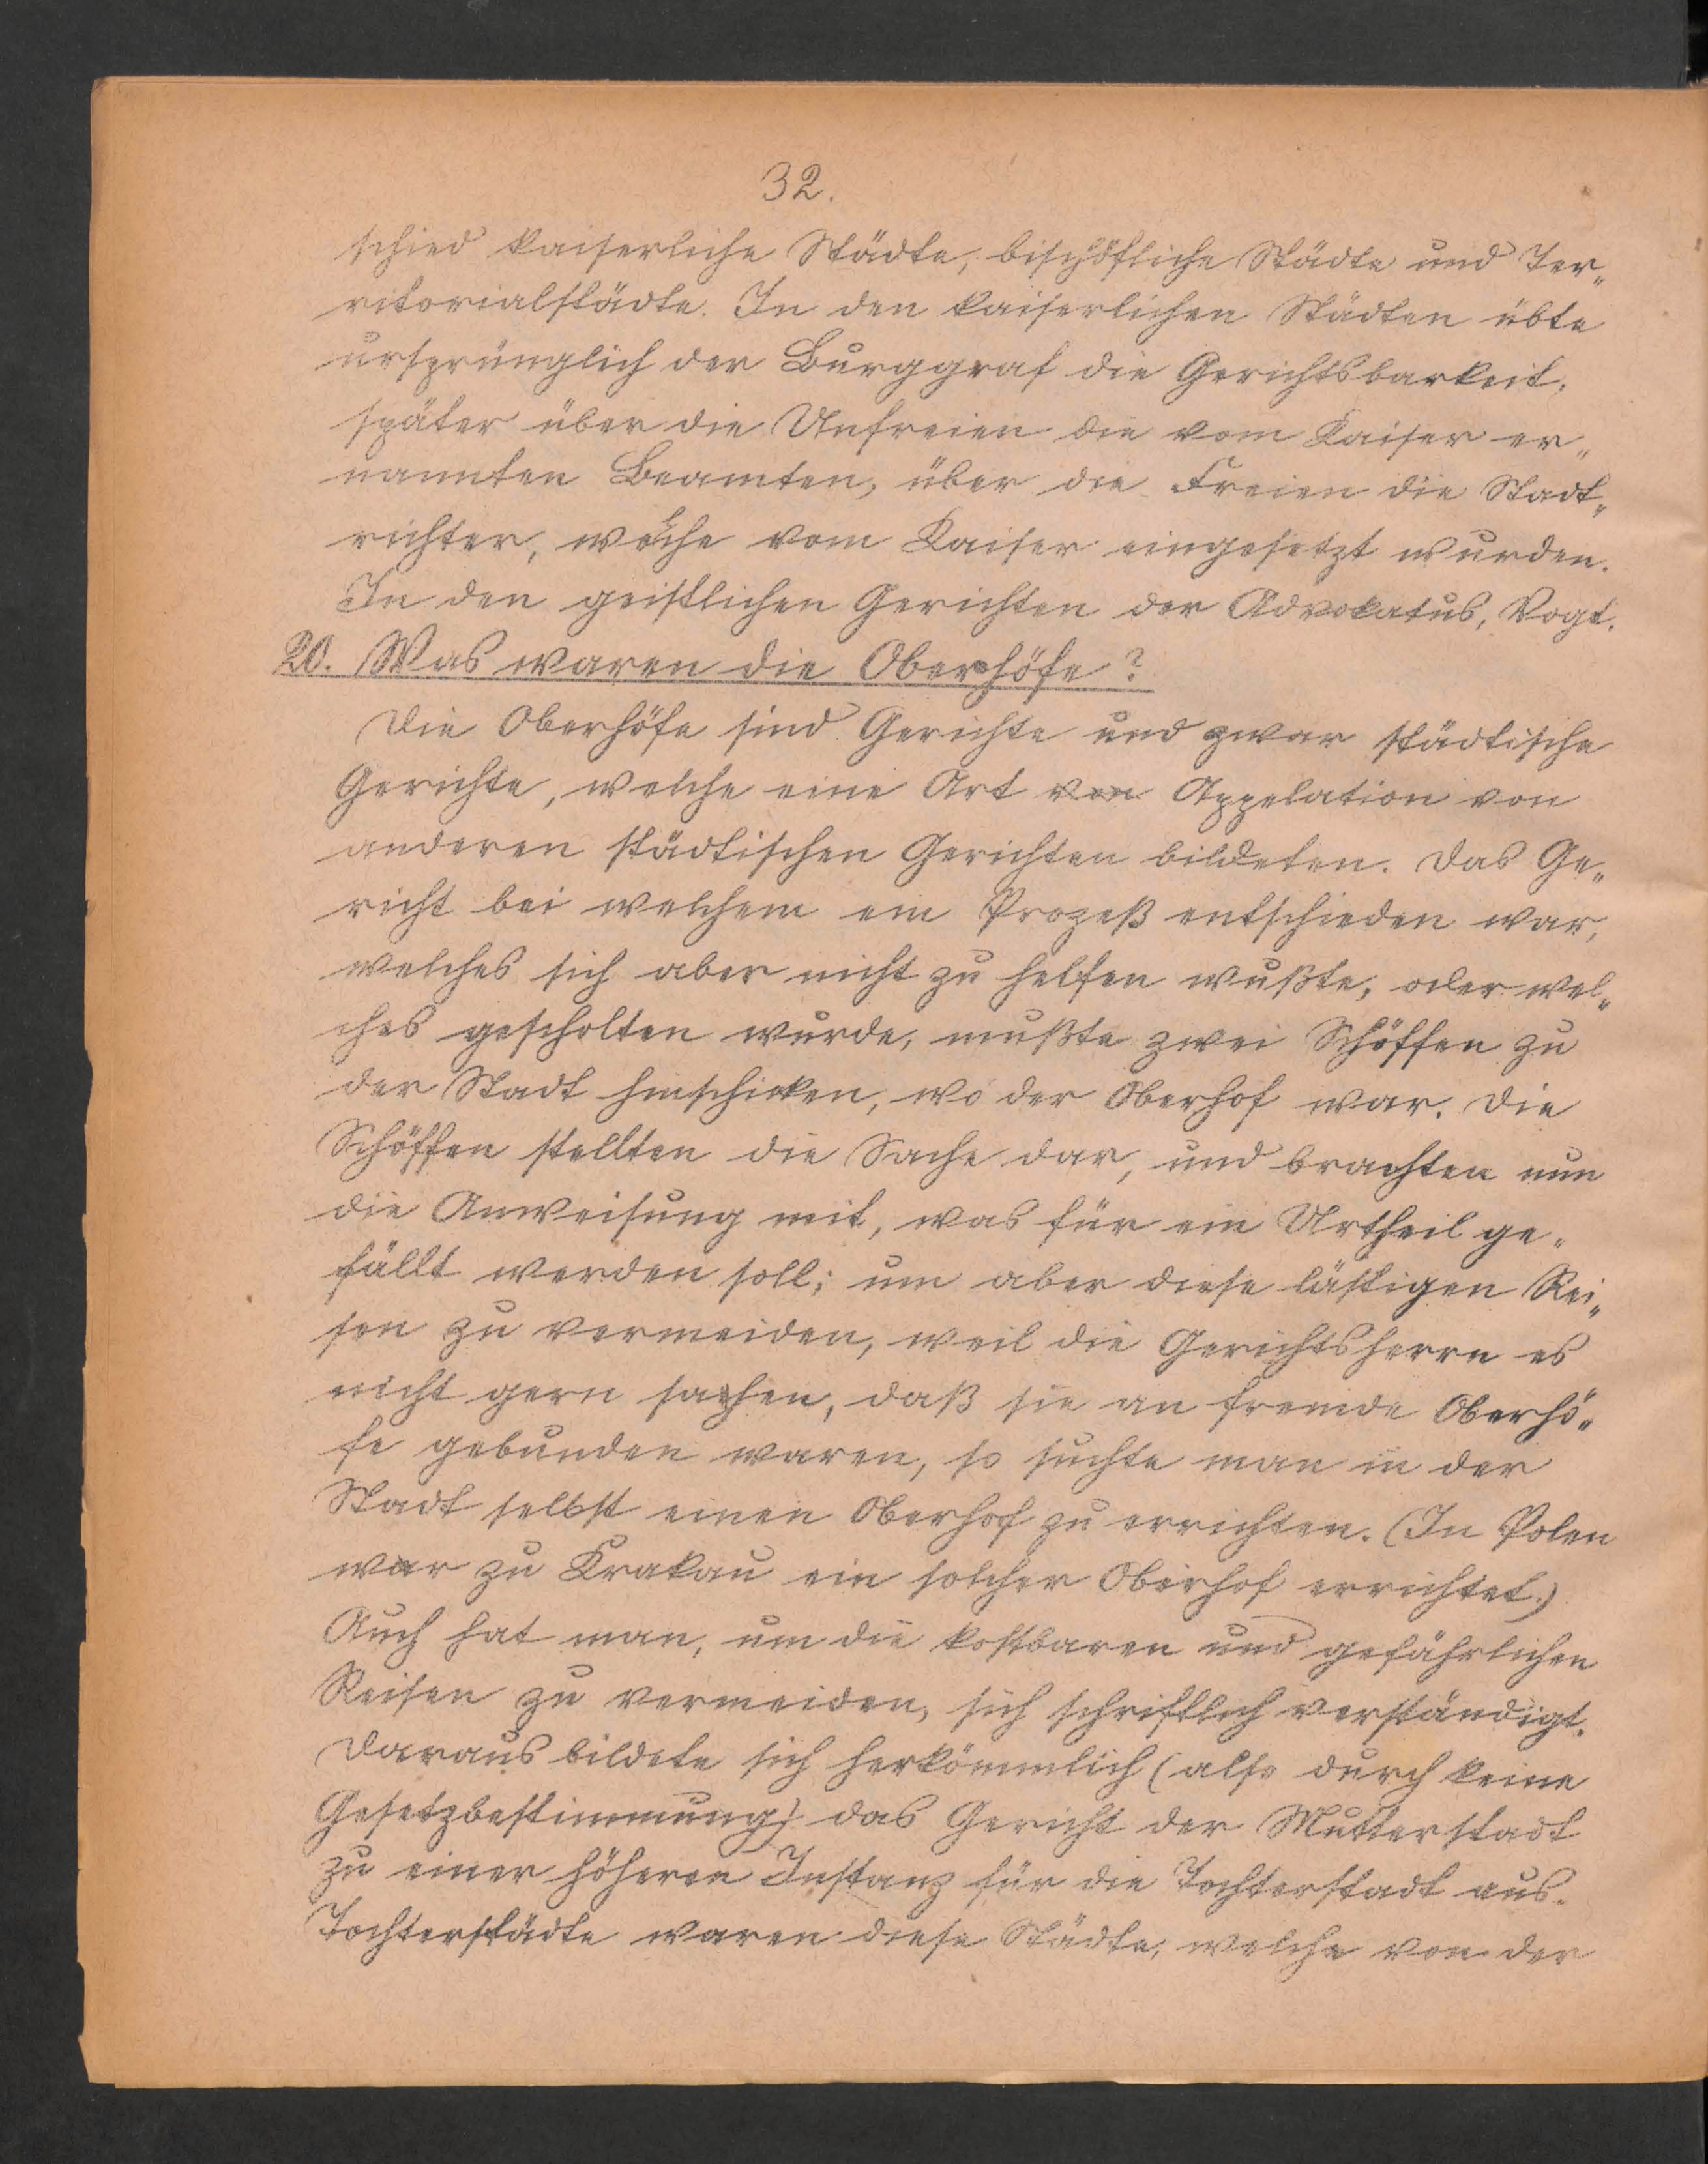 32.
schied kaiserliche Städte, bischöfliche Städte und Ter„
ritorialstädte. In den kaiserlichen Städten übte
ursprünglich der Burggraf die Gerichtsbarkeit,
später über die Unfreien die vom Kaiser er„
nannten Beamten, über die Freien die Stadt„
richter, welche vom Kaiser eingesetzt wurden.
In den geistlichen Gerichten der Advokatus, Vogt.
20. Was waren die Oberhöfe?
Die Oberhöfe sind Gerichte und zwar städtische
Gerichte, welche eine Art von Appelation von
anderen städtischen Gerichten bildeten. Das Ge„
richt bei welchem ein Prozeß entschieden war,
welches sich aber nicht zu helfen wußte, oder wel„
ches gescholten wurde, mußte zwei Schöffen zu
der Stadt hinschicken, wo der Oberhof war. Die
Schöffen stellten die Sache dar, und brachten nun
die Anweisung mit, was für ein Urtheil ge„
fällt werden soll; um aber diese lästigen Rei„
sen zu vermeiden, weil die Gerichtsherrn es
nicht gern sahen, daß sie an fremde Oberhö„
fe gebunden waren, so suchte man in der
Stadt selbst einen Oberhof zu errichten. (In Polen
war zu Krakau ein solcher Oberhof errichtet.)
Auch hat man, um die kostbaren und gefährlichen
Reisen zu vermeiden, sich schriftlich verständigt.
Daraus bildete sich herkömmlich (also durch keine
Gesetzbestimmung) das Gericht der Mutterstadt
zu einer höheren Instanz für die Tochterstadt aus.
Tochterstädte waren diese Städte, welche von der